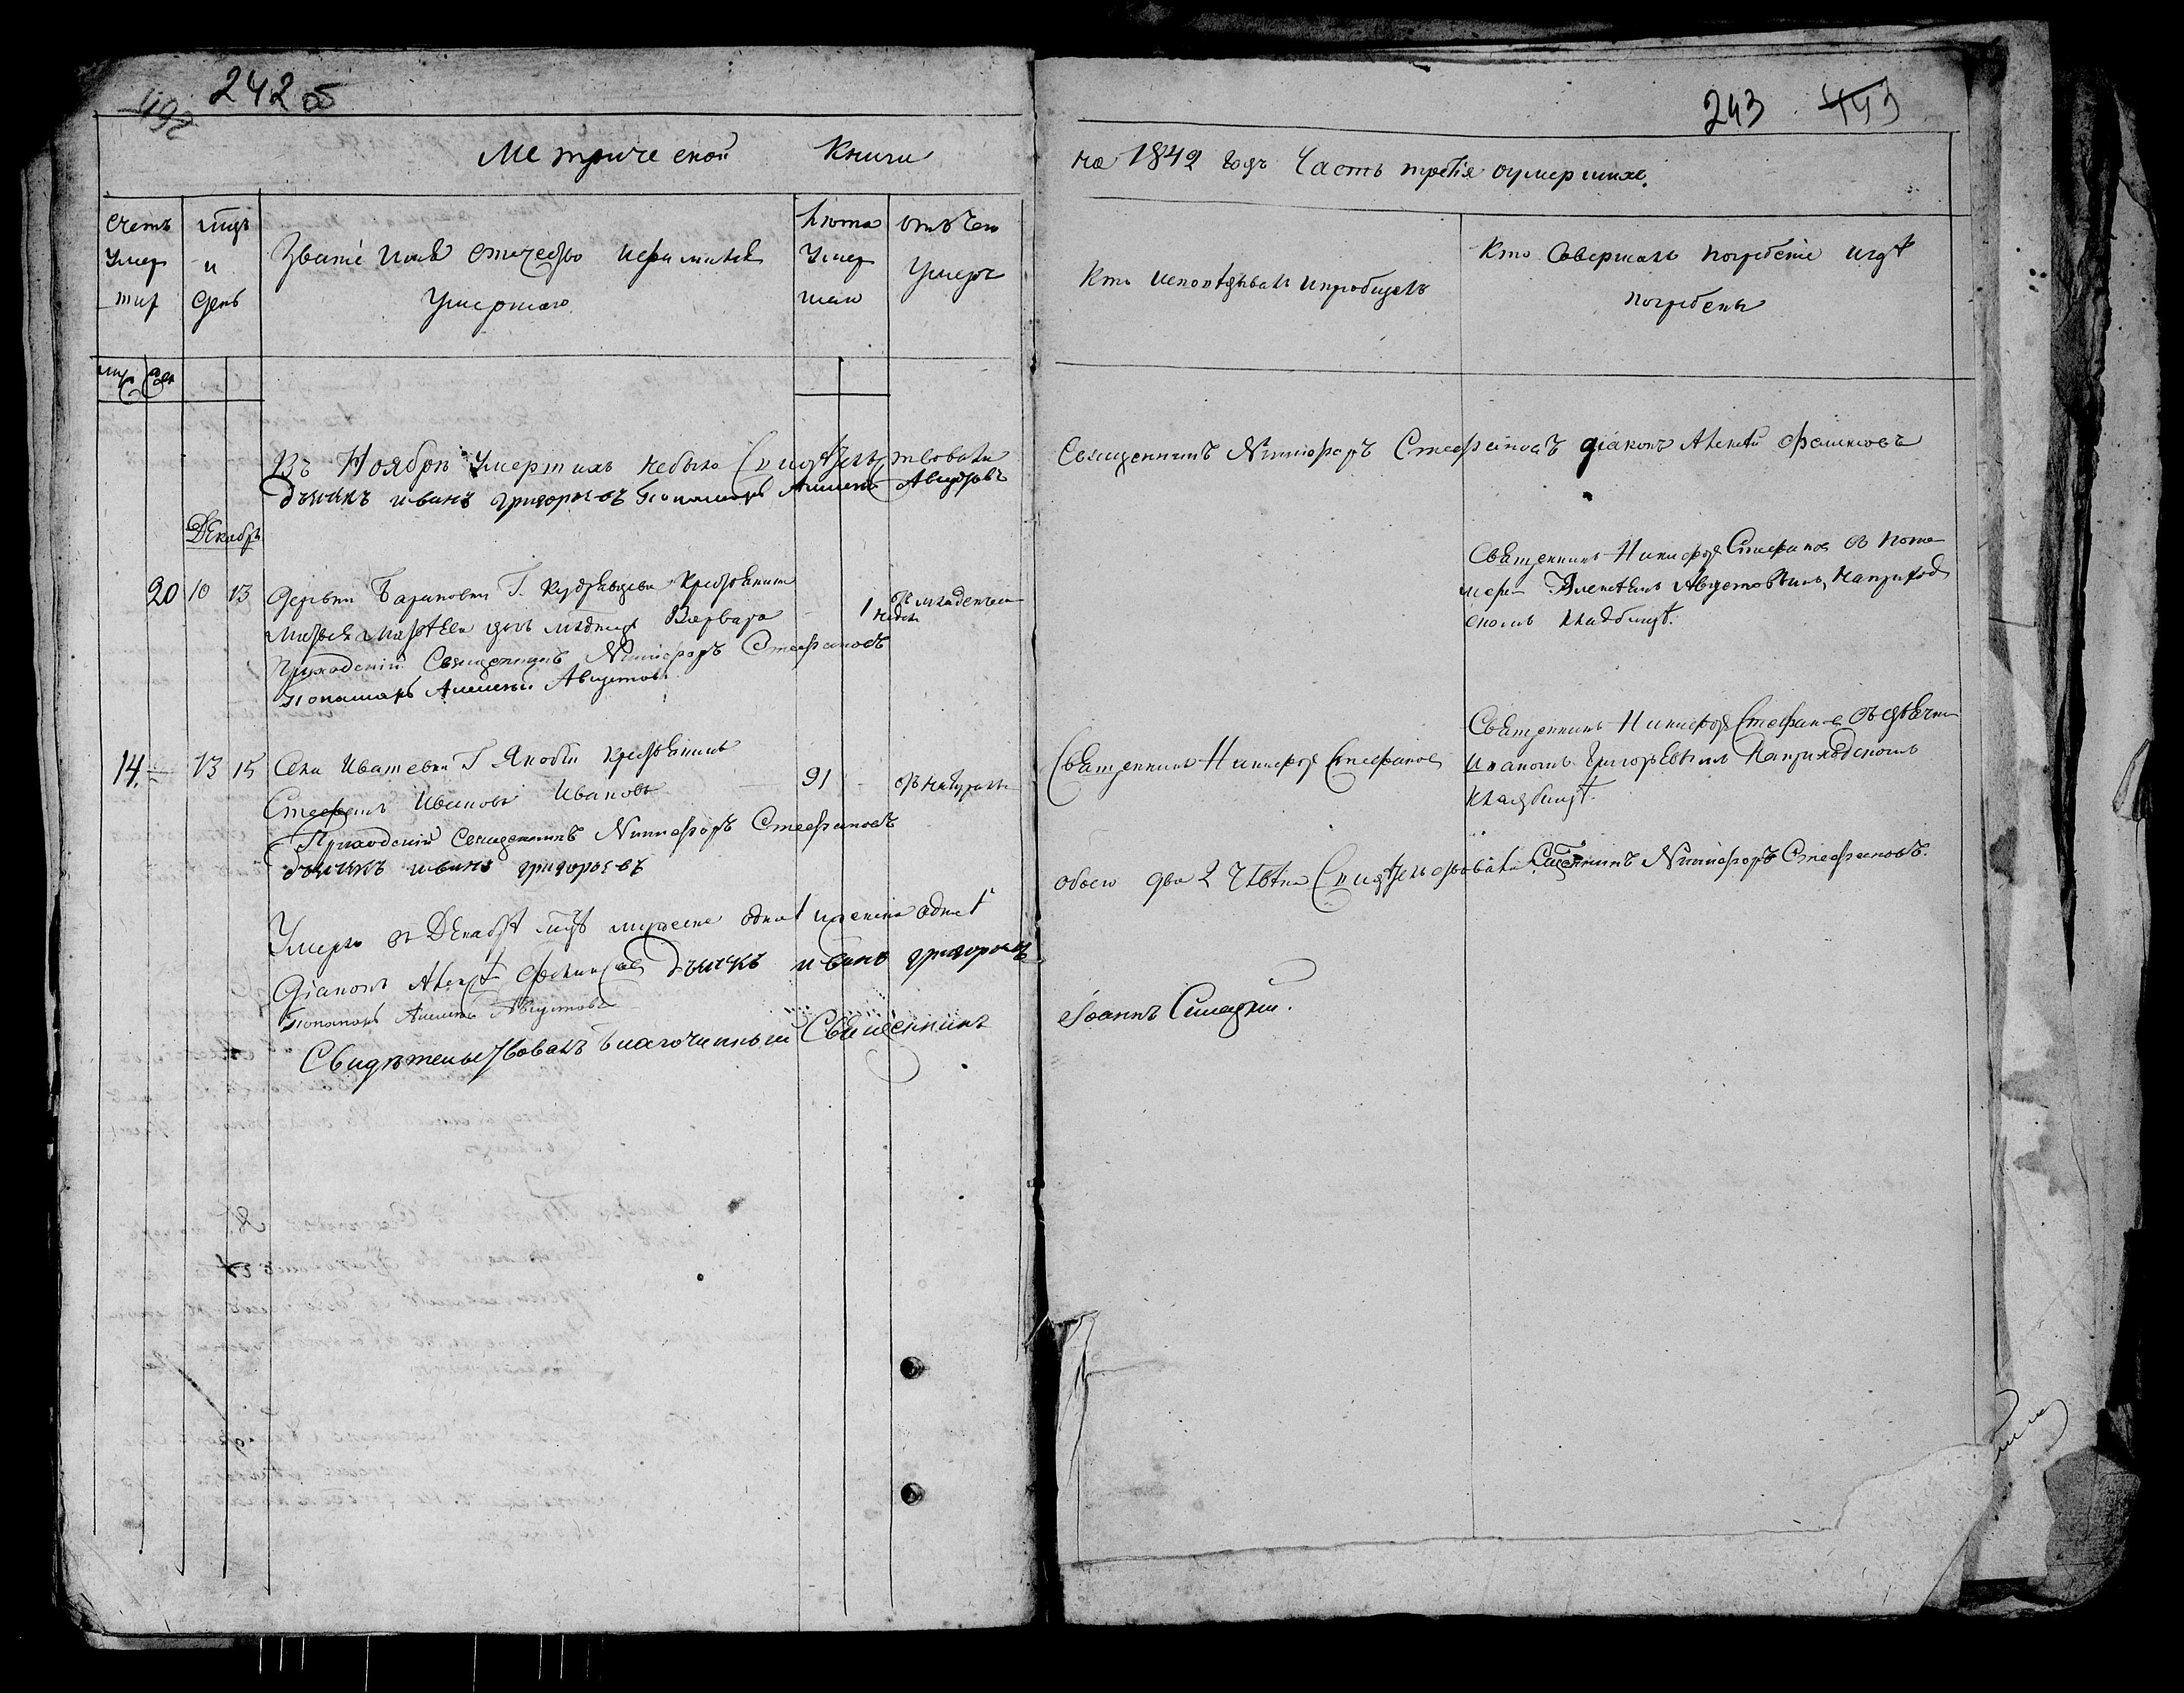 242 об
492
Метрической Книги
Счетъ умер ших
мцъ и день
Званіе имя отчество и фамилія умершаго
Лѣта умер шаго
отъ чего умеръ
муж жен
Въ Ноябрѣ умершихъ небыло Свидѣтельствовали
дьячекъ иванъ григорьевъ Пономарь Алексей Августовъ
Декабрь
20 10 13 деревни Барановки Г. Кудрявцева Крестьянина
дочь младенецъ Варвара 1 недели отъ младенческой
Приходскій Священникъ Никифоръ Стефановъ
Пономарь Алексей Августовъ
14. 13 15 Села Ивашевки Г Якоби крестьянинъ
Стефанъ Ивановъ Ивановъ 91 отъ натуральн
Приходскій Священникъ Никифоръ Стефановъ
дьячекъ иванъ григорьевъ
Умерло въ Декабрѣ мцѣ мужеска одна 1 и женска одна 1
діаконъ Алексѣй дьячекъ иванъ григорьевъ
Пономарь Алексей Августовъ
Свидѣтельствовалъ благочинный Священникъ
243 443
на 1842 годъ Часть третія оумершихъ.
Кто исповѣдывалъ и пріобщалъ
Кто Совершалъ погребеніе и гдѣ
погребены
Священникъ Никифоръ Стефановъ діаконъ Алексѣй
Священникъ Никифоръ Стефановъ съ поно-
маремъ Алексѣемъ Августовымъ, на приход
скомъ кладбищѣ.
Священникъ Никифоръ Стефановъ
Священникъ Никифоръ Стефановъ съ дьячкомъ
Иваномъ Григорьевымъ на приходскомъ
кладбищѣ.
обоего два 2 человѣка Свидѣтельствовали Священникъ Никифоръ Стефановъ.
Іоаннъ